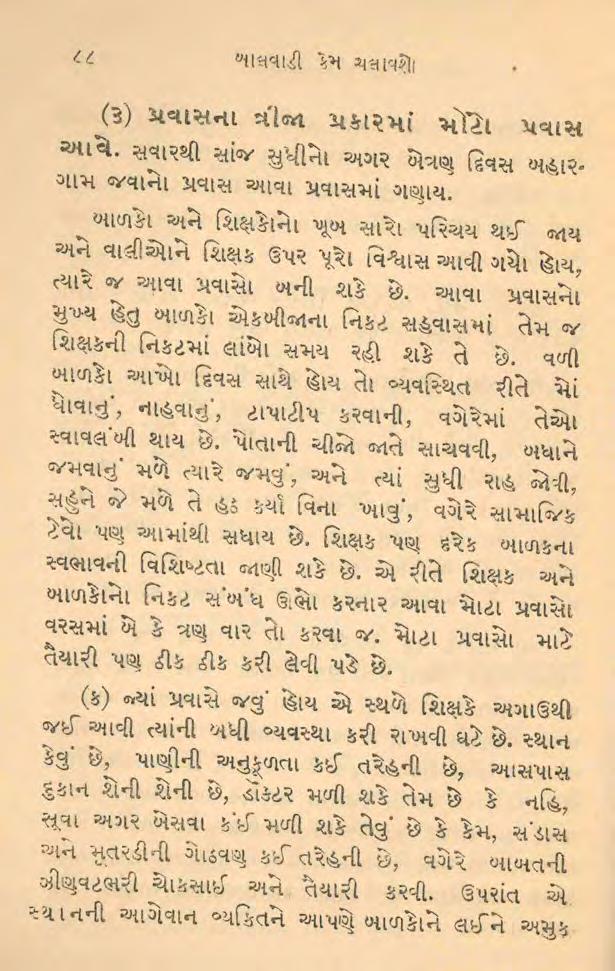 ૮૮
બાલવાડી કેમ ચલાવશો
(૩) પ્રવાસના ત્રીજા પ્રકારમાં મોટો પ્રવાસ
આવે. સવારથી સાંજ સુધીનો અગર બેત્રણ દિવસ બહાર-
ગામ જવાનો પ્રવાસ આવા પ્રવાસમાં ગણાય.
બાળકો અને શિક્ષકોનો ખૂબ સારો પરિચય થઈ જાય
અને વાલીઓને શિક્ષક ઉપર પૂરો વિશ્વાસ આવી ગયો હોય,
ત્યારે જ આવા પ્રવાસો બની શકે છે. આવા પ્રવાસનો
મુખ્ય હેતુ બાળકો એકબીજાના નિકટ સહવાસમાં તેમ જ
શિક્ષકની નિકટમાં લાંબો સમય રહી શકે તે છે. વળી
બાળકો આખો દિવસ સાથે હોય તો વ્યવસ્થિત રીતે મોં
ધોવાનું, નાહવાનું, ટાપાટીપ કરવાની, વગેરેમાં તેઓ
સ્વાવલંબી થાય છે. પોતાની ચીજો જાતે સાચવવી, બધાને
જમવાનું મળે ત્યારે જમવું, અને ત્યાં સુધી રાહ જોવી,
સહુને જે મળે તે હઠ કર્યા વિના ખાવું, વગેરે સામાજિક
ટેવો પણ આમાંથી સધાય છે. શિક્ષક પણ દરેક બાળકના
સ્વભાવની વિશિષ્ટતા જાણી શકે છે. એ રીતે શિક્ષક અને
બાળકોનો નિકટ સંબંધ ઊભો કરનાર આવા મોટા પ્રવાસો
વરસમાં બે કે ત્રણ વાર તો કરવા જ. મોટા પ્રવાસો માટે
તૈયારી પણ ઠીક ઠીક કરી લેવી પડે છે.
(ક) જ્યાં પ્રવાસે જવું હોય એ સ્થળે શિક્ષકે અગાઉથી
જઈ આવી ત્યાંની બધી વ્યવસ્થા કરી રાખવી ઘટે છે. સ્થાન
કેવું છે, પાણીની અનુકૂળતા કઈ તરેહની છે, આસપાસ
દુકાન શેની શેની છે, ડૉક્ટર મળી શકે તેમ છે કે નહિ,
સૂવા અગર બેસવા કંઈ મળી શકે તેવું છે કે કેમ, સંડાસ
અને મૂતરડીની ગોઠવણ કઈ તરેહની છે, વગેરે બાબતની
ઝીણવટભરી ચોકસાઈ અને તૈયારી કરવી. ઉપરાંત એ
સ્થાનની આગેવાન વ્યક્તિને આપણે બાળકોને લઈને અમુક